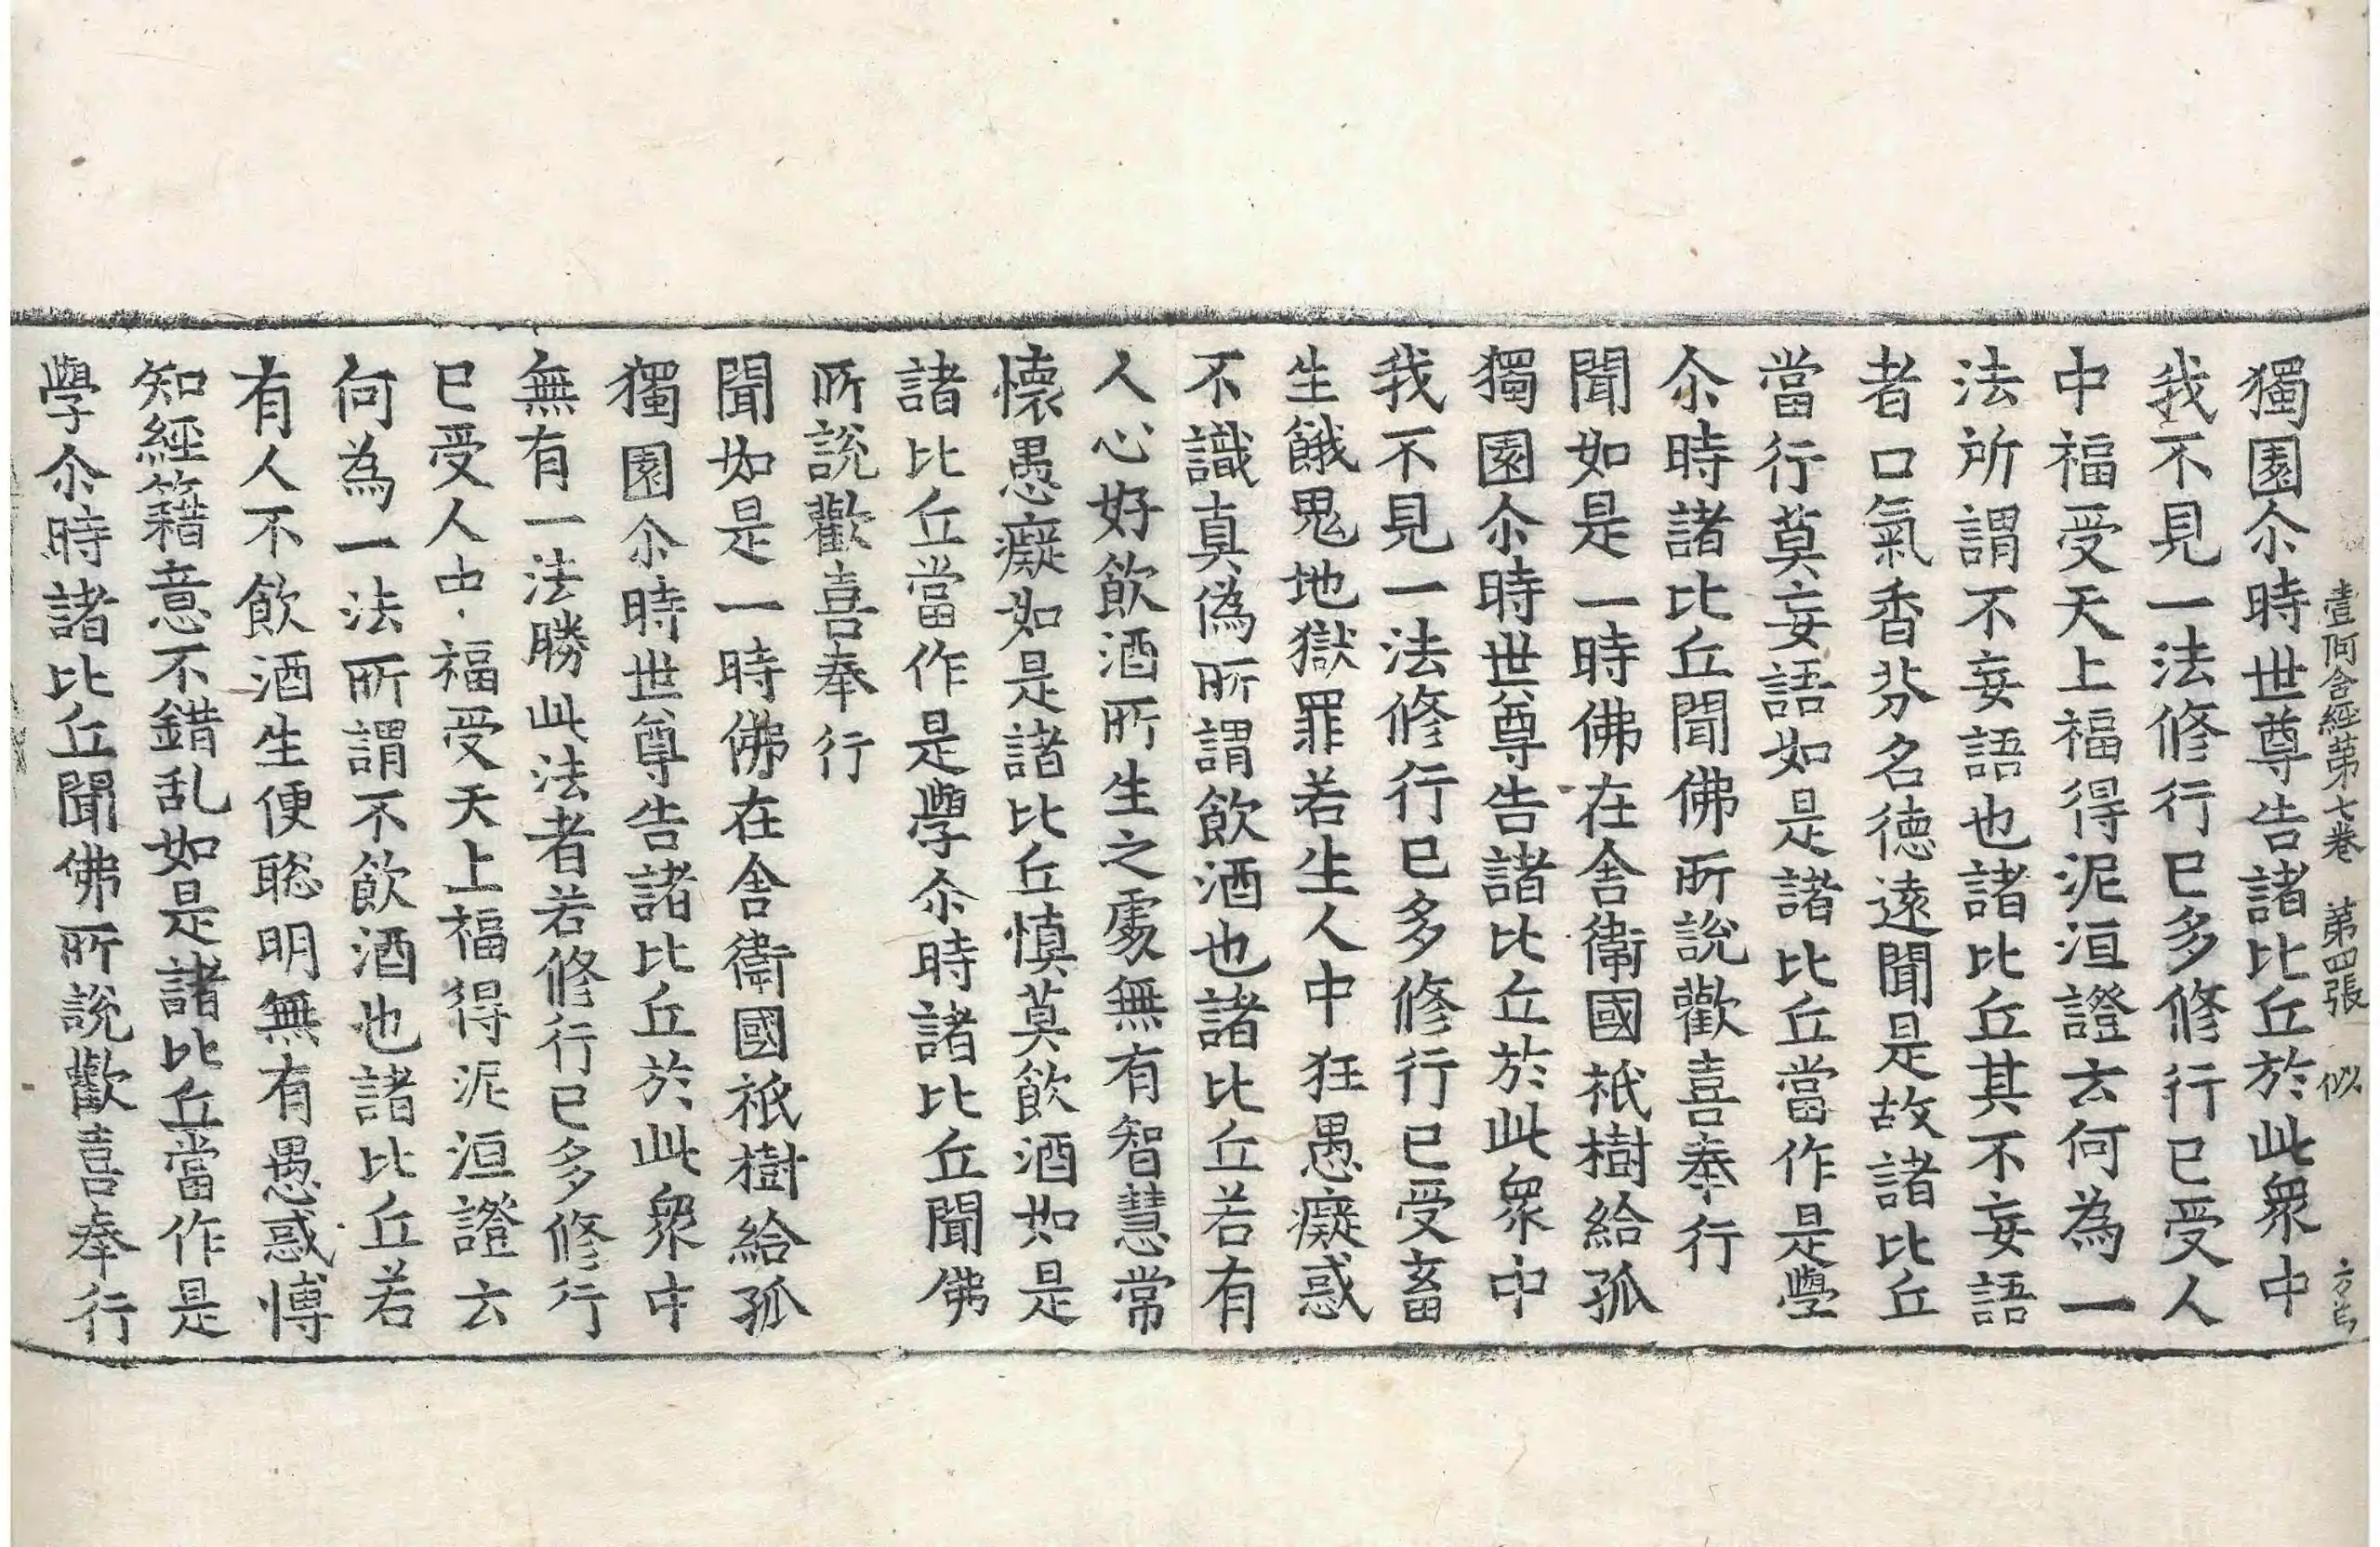 壹阿含經第七卷 第四張 似
獨園尒時世尊告諸比丘於此衆中
我不見一法修行已多修行已受人
中福受天上福得泥洹證云何為一
法所謂不妄語也諸比丘其不妄語
者口氣香芬名德遠聞是故諸比丘
當行莫妄語如是諸比丘當作是學
尒時諸比丘聞佛所說歡喜奉行
聞如是一時佛在舍衛國祇樹給孤
獨園尒時世尊告諸比丘於此衆中
我不見一法修行已多修行已受畜
生餓鬼地獄罪若生人中狂愚癡惑
不識真偽所謂飲酒也諸比丘若有
人心好飲酒所生之處無有智慧常
懷愚癡如是諸比丘慎莫飲酒如是
諸比丘當作是學尒時諸比丘聞佛
所說歡喜奉行
聞如是一時佛在舍衛國祇樹給孤
獨園尒時世尊告諸比丘於此衆中
無有一法勝此法者若修行已多修行
已受人中福受天上福得泥洹證云
何為一法所謂不飲酒也諸比丘若
有人不飲酒生便聡明無有愚惑愽
知經籍意不錯乱如是諸比丘當作是
學尒時諸比丘聞佛所說歡喜奉行